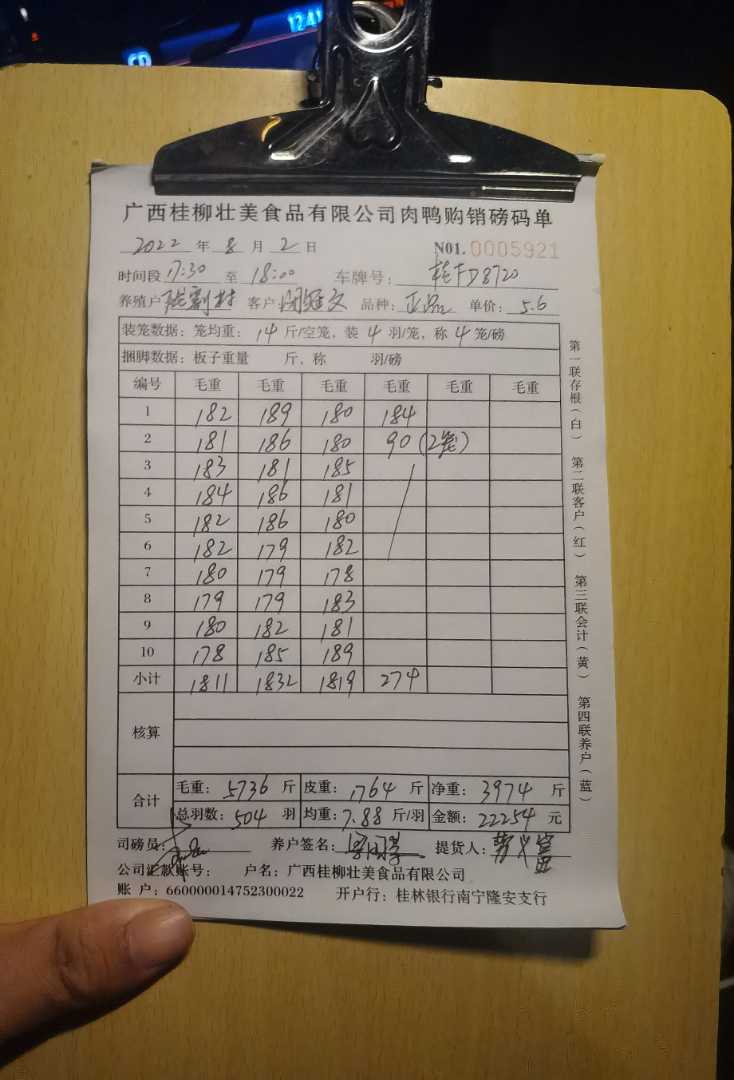 12:41
CD
广西桂柳壮美食品有限公司肉鸭购销磅码单
2022 年 8 月 2 日 N01. 0005921
时间段 17:30 至 18:00 车牌号: D8720
养殖户 客户: 品种: 正品 单价: 5.6
装笼数据: 笼均重: 14 斤/空笼, 装 4 羽/笼, 称 4 笼/磅
捆脚数据: 板子重量 斤, 称 羽/磅
编号 毛重 毛重 毛重 毛重 毛重 毛重
1 182 189 180 184
2 181 186 180 90 (2笼)
3 183 181 185
4 184 186 181
5 182 186 180
6 182 179 182
7 180 179 178
8 179 179 183
9 180 182 181
10 178 185 189
小计 1811 1832 1819 274
核算
合计 毛重: 5736 斤 皮重: 1764 斤 净重: 3974 斤
总羽数: 504 羽 均重: 7.88 斤/羽 金额: 22254 元
司磅员: 养户签名: 提货人:
公司汇款账号: 户名: 广西桂柳壮美食品有限公司
账 户: 660000014752300022 开户行: 桂林银行南宁隆安支行
第一联存根(白) 第二联客户(红) 第三联会计(黄) 第四联养户(蓝)